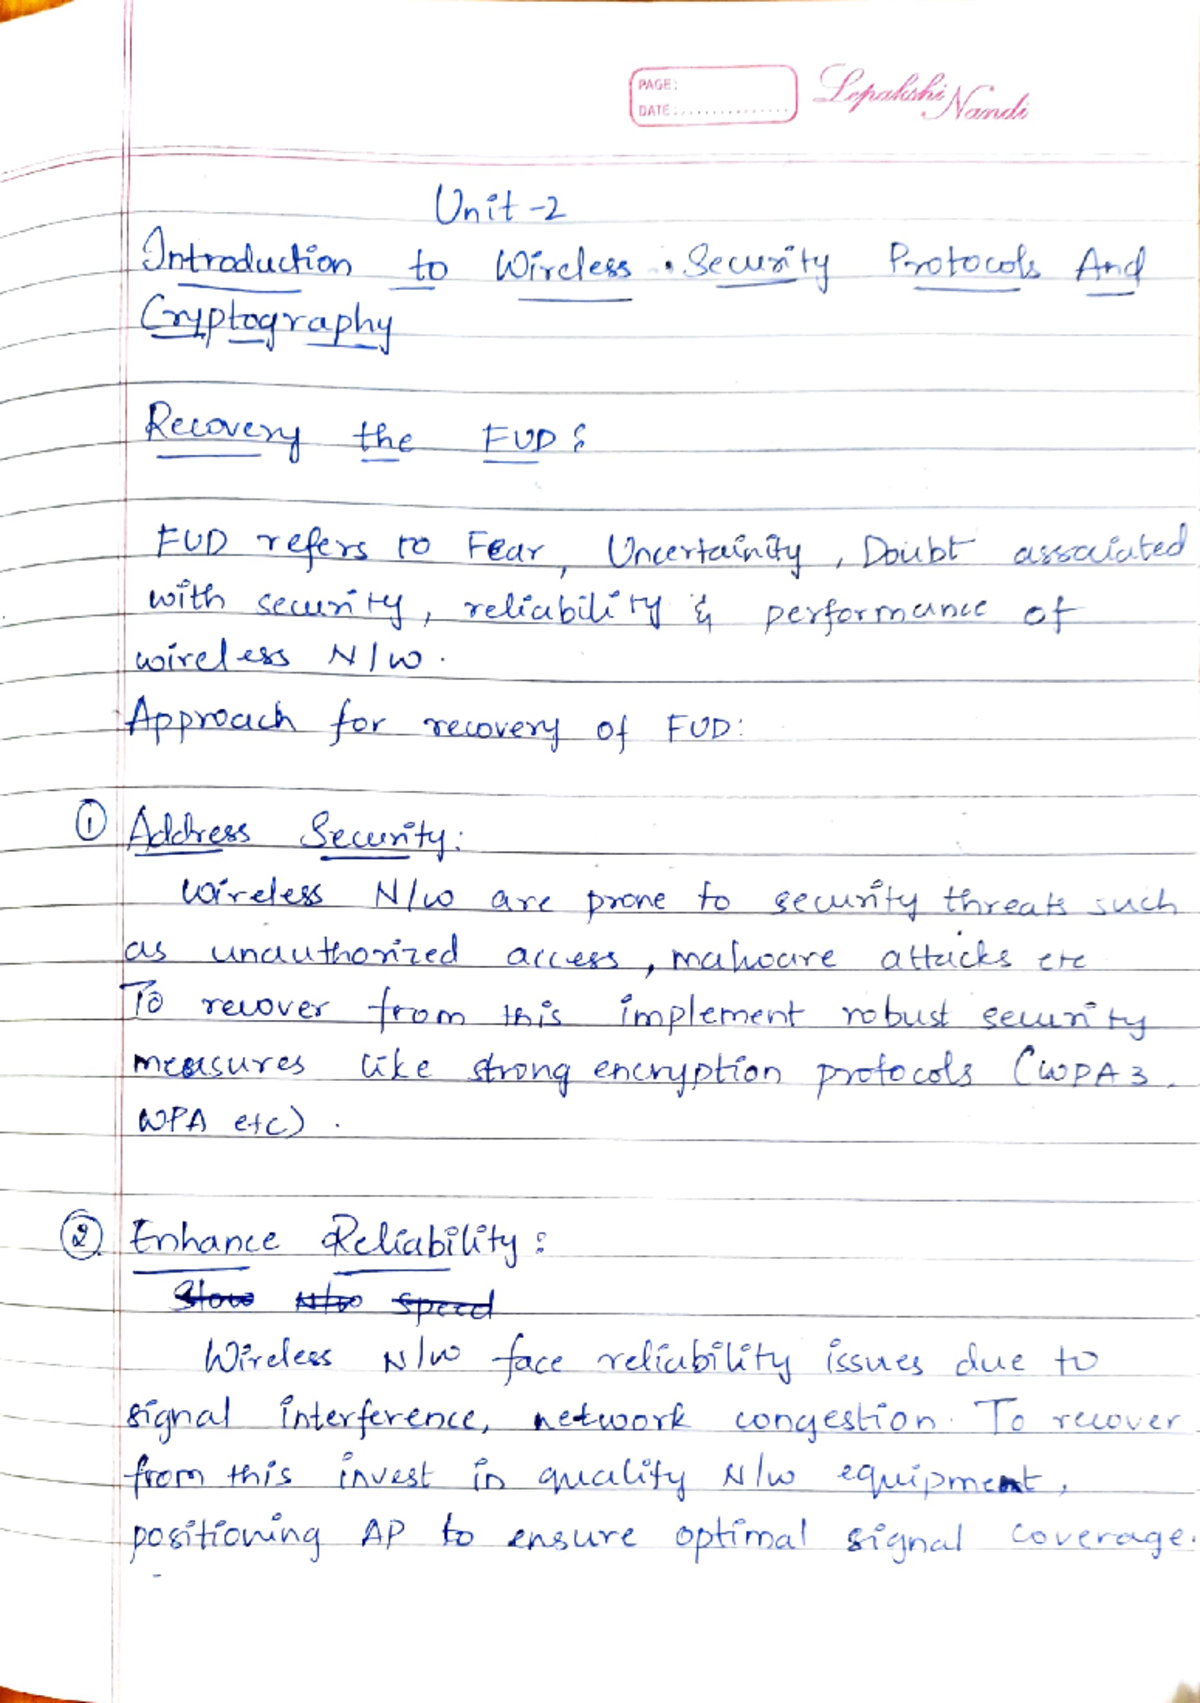 PAGE:
DATE:..............
Lepakshi Nandi
Unit-2
Introduction to Wireless Security Protocols And
Cryptography
Recovery the FUD:
FUD refers to Fear, Uncertainity, Doubt associated
with security, reliability & performance of
wireless N/w.
Approach for recovery of FUD:
① Address Security:
Wireless N/w are prone to security threats such
as unauthorized access, malware attacks etc
To recover from this implement robust security
measures like strong encryption protocols (WPA3,
WPA etc).
② Enhance Reliability:
Slow N/w speed
Wireless N/w face reliability issues due to
signal interference, network congestion. To recover
from this invest in quality N/w equipment,
positioning AP to ensure optimal signal coverage.